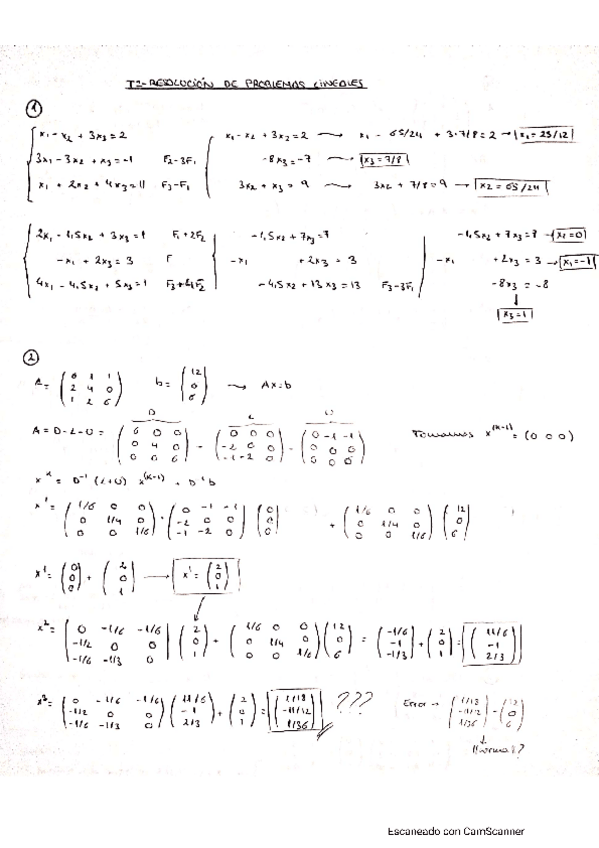 T2-RESOLUCIÓN DE PROBLEMAS LINEALES
1
x1 - x2 + 3x3 = 2    x1 - x2 + 3x3 = 2 → x1 - 65/24 + 3·7/8 = 2 → x1 = 25/12
3x1 - 3x2 + x3 = -1    F2-3F1    -8x3 = -7 → x3 = 7/8
x1 + 2x2 + 4x3 = 11    F3-F1    3x2 + x3 = 9 → 3x2 + 7/8 = 9 → x2 = 65/24
2x1 - 1,5x2 + 3x3 = 1    F1+2F2    -1,5x2 + 7x3 = 7    -1,5x2 + 7x3 = 7 → x2 = 0
-x1 + 2x3 = 3    F    -x1 + 2x3 = 3    -x1 + 2x3 = 3 → x1 = -1
4x1 - 4,5x2 + 5x3 = 1    F3+4F2    -4,5x2 + 13x3 = 13    F3-3F1    -8x3 = -8
x3 = 1
2
A = (6 1 1; 2 4 0; 1 2 6)    b = (12; 0; 6) → Ax = b
D    L    U
A = D-L-U = (6 0 0; 0 4 0; 0 0 6) - (0 0 0; -2 0 0; -1 -2 0) - (0 -1 -1; 0 0 0; 0 0 0)    Tomamos x^(k-1) = (0 0 0)
x^k = D^-1 (L+U) x^(k-1) + D^-1 b
x^1 = (1/6 0 0; 0 1/4 0; 0 0 1/6) · (0 -1 -1; -2 0 0; -1 -2 0) (0; 0; 0) + (1/6 0 0; 0 1/4 0; 0 0 1/6) (12; 0; 6)
x^1 = (0; 0; 0) + (2; 0; 1) → x^1 = (2; 0; 1)
x^2 = (0 -1/6 -1/6; -1/2 0 0; -1/6 -1/3 0) (2; 0; 1) + (1/6 0 0; 0 1/4 0; 0 0 1/6) (12; 0; 6) = (-1/6; -1; -1/3) + (2; 0; 1) = (11/6; -1; 2/3)
x^3 = (0 -1/6 -1/6; -1/2 0 0; -1/6 -1/3 0) (11/6; -1; 2/3) + (2; 0; 1) = (1/18; -11/12; 1/36) ???    Error → (1/18; -11/12; 1/36) - (12; 0; 6)
Escaneado con CamScanner